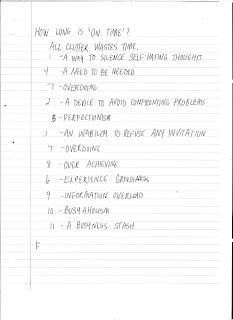 HOW LONG IS 'ON TIME'?
ALL CLUTTER WASTES TIME.
1 - A WAY TO SILENCE SELF-HATING THOUGHTS
4 - A NEED TO BE NEEDED
7 - OVERDOING
2 - A DEVICE TO AVOID CONFRONTING PROBLEMS
5 - PERFECTIONISM
3 - AN INABILITY TO REFUSE ANY INVITATION
7 - OVERDOING
8 - OVER ACHIEVING
6 - EXPERIENCE GREEDINESS
9 - INFORMATION OVERLOAD
10 - BUSYAHOLISM
11 - A BUSYNESS STASH
F